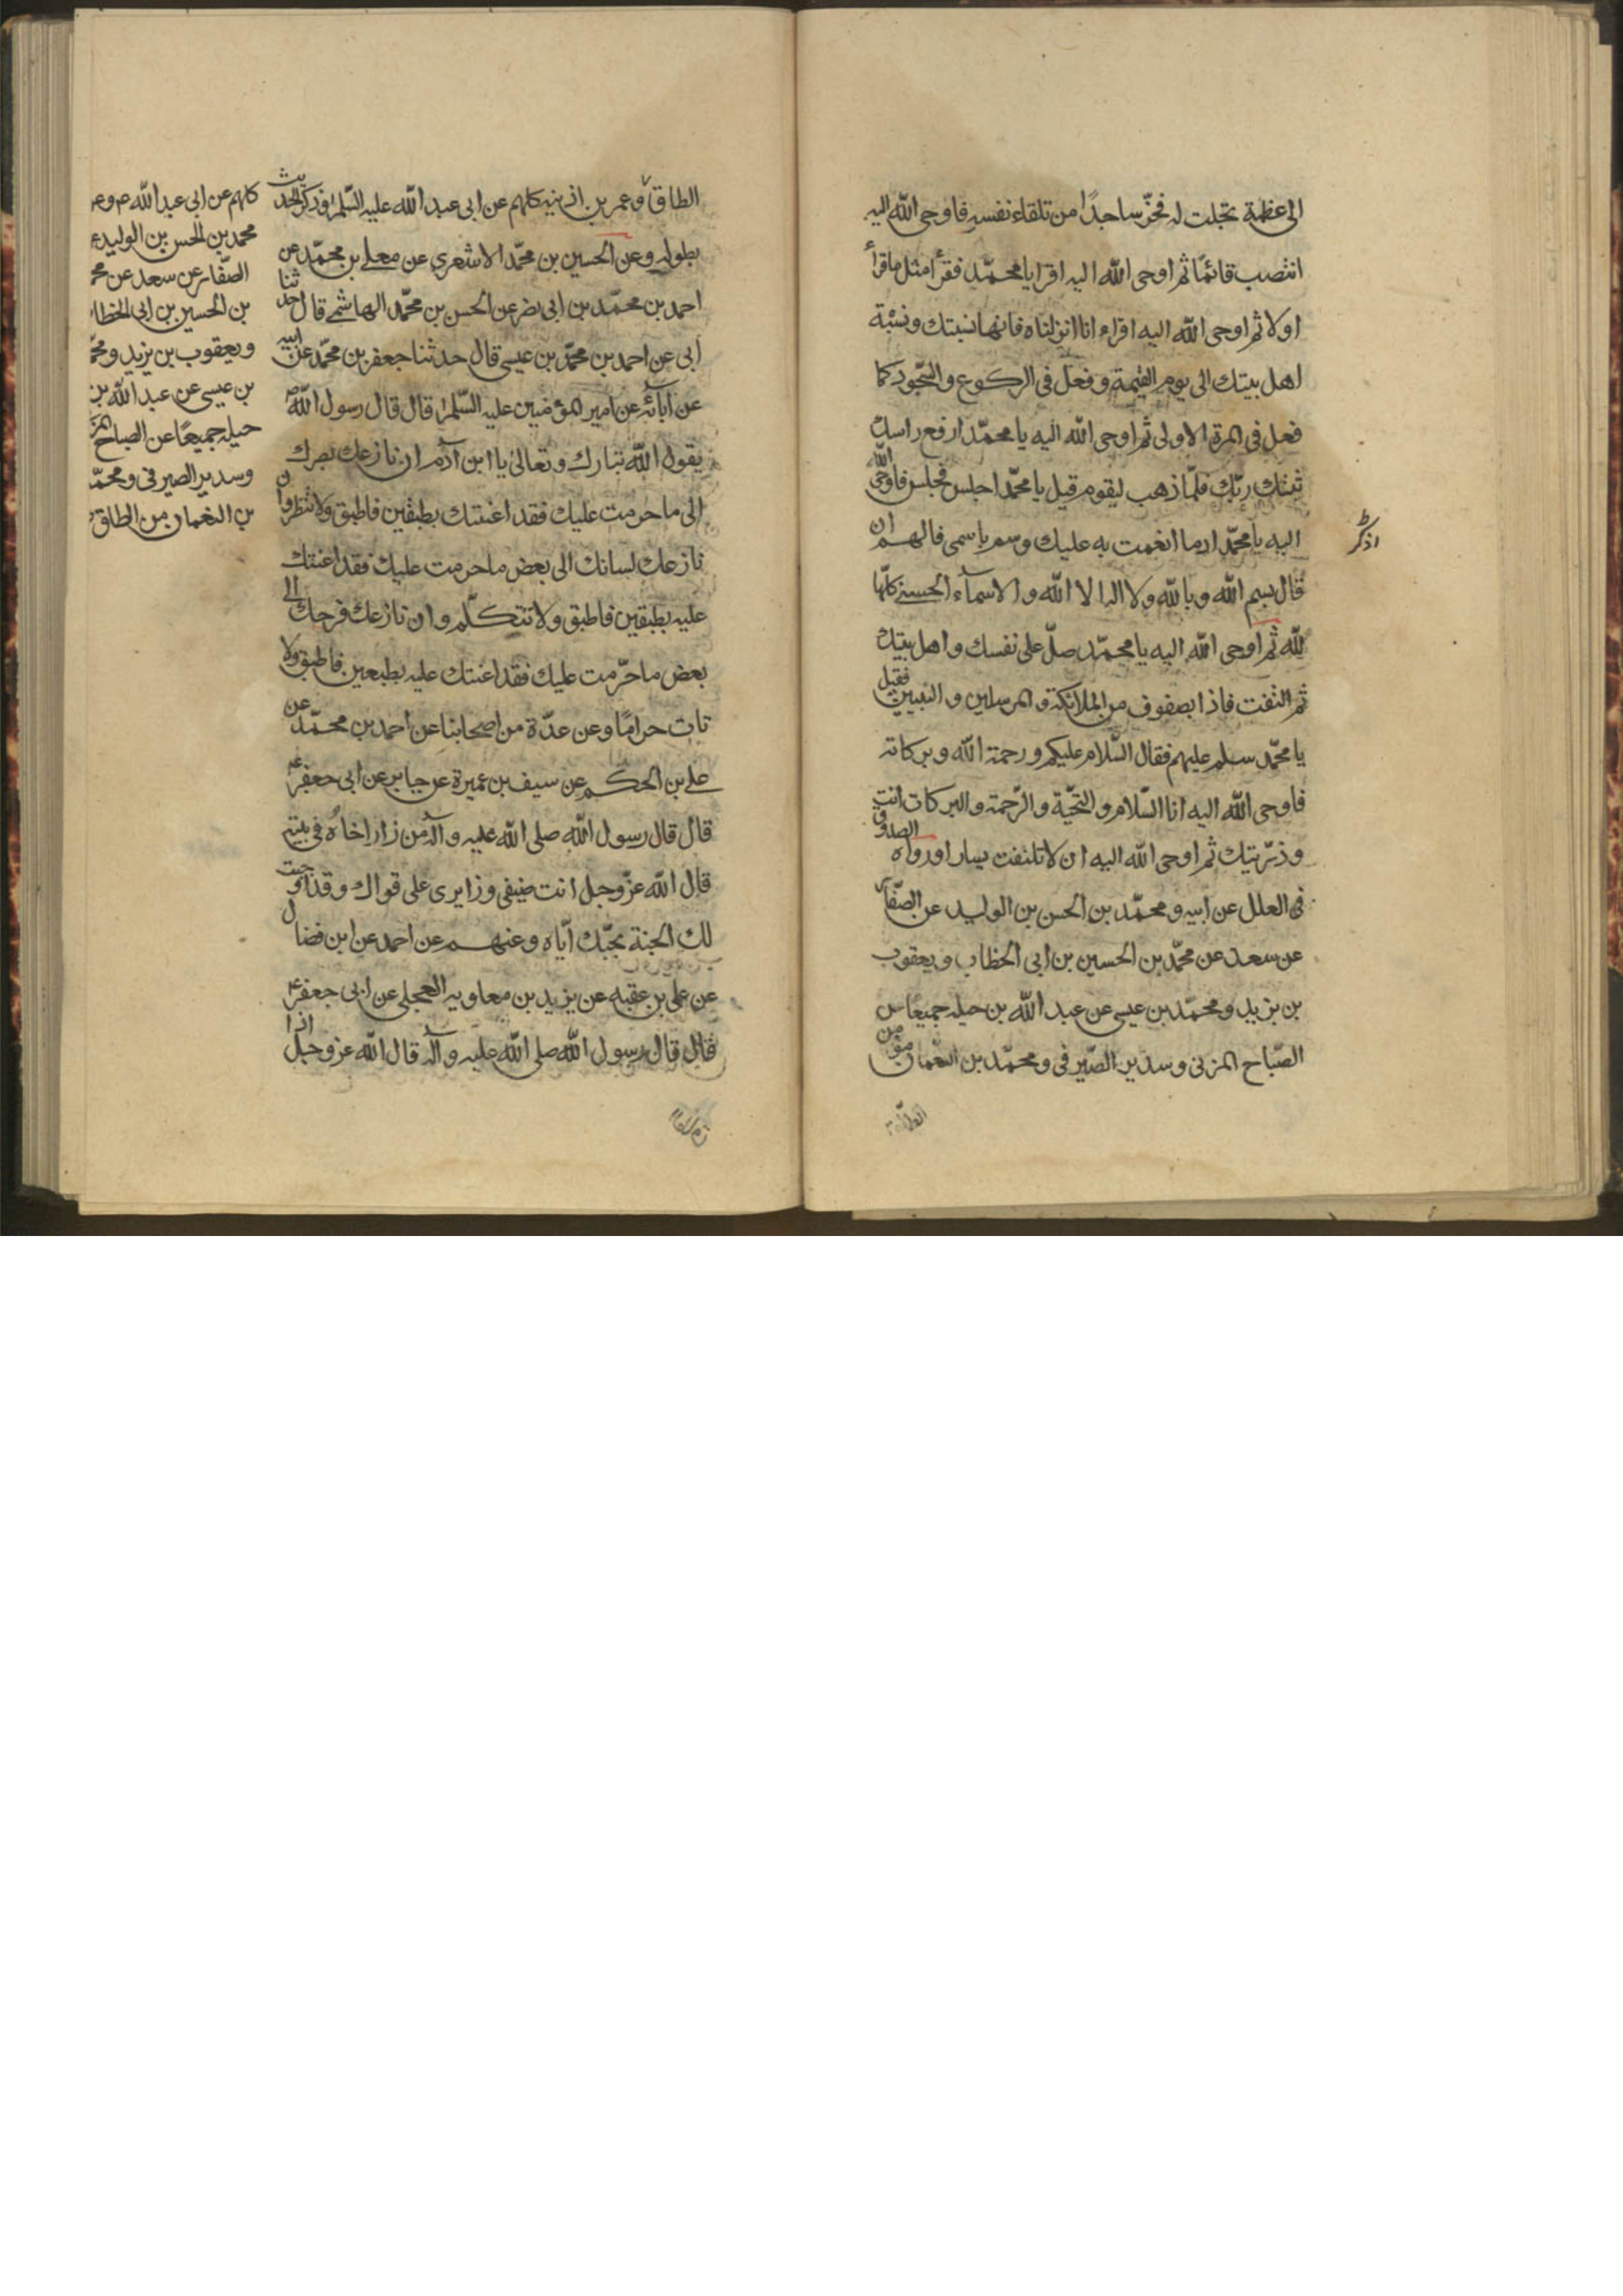 الى عظمة تجلت له فخرّ ساجدًا من تلقاء نفسه فاوحى الله اليه
انتصب قائمًا ثم اوحى الله اليه اقرا يا محمّد فقرأ مثل ما قرأ
اولا ثم اوحى الله اليه اقراء انا انزلناه فانها نسبتك ونسبة
اهل بيتك الى يوم القيمة وفعل فى الركوع والسّجود كما
فعل فى المرة الاولى ثم اوحى الله اليه يا محمّد ارفع راسك
ثبتك ربّك فلمّا ذهب ليقوم قيل يا محمّد اجلس فجلس فاوحى الله
اليه يا محمّد اذا ما انعمت به عليك وسم باسمى فالهم ان
اذكر
قال بسم الله وبالله ولا اله الا الله والاسماء الحسنى كلّها
للّه ثم اوحى الله اليه يا محمّد صلّ على نفسك واهل بيتك
ثم التفت فاذا بصفوف من الملائكة والمرسلين والنبيين فقيل
يا محمّد سلم عليهم فقال السّلام عليكم ورحمة الله وبركاته
فاوحى الله اليه انا السّلام والتحيّة والرّحمة والبركات انت
وذرّيتك ثم اوحى الله اليه ان لا تلتفت يسارا ورواه الصدوق
فى العلل عن ابيه ومحمّد بن الحسن بن الوليد عن الصّفار
عن سعد عن محمّد بن الحسين بن ابى الخطاب ويعقوب
بن يزيد ومحمّد بن عيسى عن عبد الله بن جبله جميعًا عن
الصّباح المزنى وسدير الصّيرفى ومحمّد بن النعمان مؤمن
الطاق
الطاق وعمر بن اذينه كلهم عن ابى عبد الله عليه السّلم وذكر الحديث
بطوله وعن الحسين بن محمّد الاشعرى عن معلى بن محمّد عن
احمد بن محمّد بن ابى نصر عن الحسن بن محمّد الهاشمى قال حدثنا
أبى عن احمد بن محمّد بن عيسى قال حدثنا جعفر بن محمّد عن ابيه
عن آبائه عن امير المؤمنين عليه السّلم قال قال رسول الله ص
يقول الله تبارك وتعالى يا ابن آدم ان نازعك بصرك
الى ما حرمت عليك فقد اعنتك بطبقين فاطبق ولا تنظر وان
نازعك لسانك الى بعض ما حرمت عليك فقد اعنتك
عليه بطبقين فاطبق ولا تتكلّم وان نازعك فرجك الى
بعض ما حرّمت عليك فقد اعنتك عليه بطبعين فاطبق ولا
تات حرامًا وعن عدّة من اصحابنا عن احمد بن محمّد عن
على بن الحكم عن سيف بن عميرة عن جابر عن ابى جعفر ع
قال قال رسول الله صلى الله عليه وآله من زار اخاه فى بيته
قال الله عزّ وجل انت ضيفى وزايرى على قراك وقد اوجبت
لك الجنة بحبّك ايّاه وعنهم عن احمد عن ابن فضال
عن على بن عقبه عن يزيد بن معاويه العجلى عن ابى جعفر ع
قال قال رسول الله صلى الله عليه وآله قال الله عز وجل اذا
كلهم عن ابى عبد الله ع وعن
محمد بن الحسن بن الوليد ع
الصّفار عن سعد عن مح
بن الحسين بن ابى الخطا
ويعقوب بن يزيد ومح
بن عيسى عن عبد الله بن
جبله جميعًا عن الصباح المز
وسدير الصيرفى ومحمّد
بن النعمان من الطاق